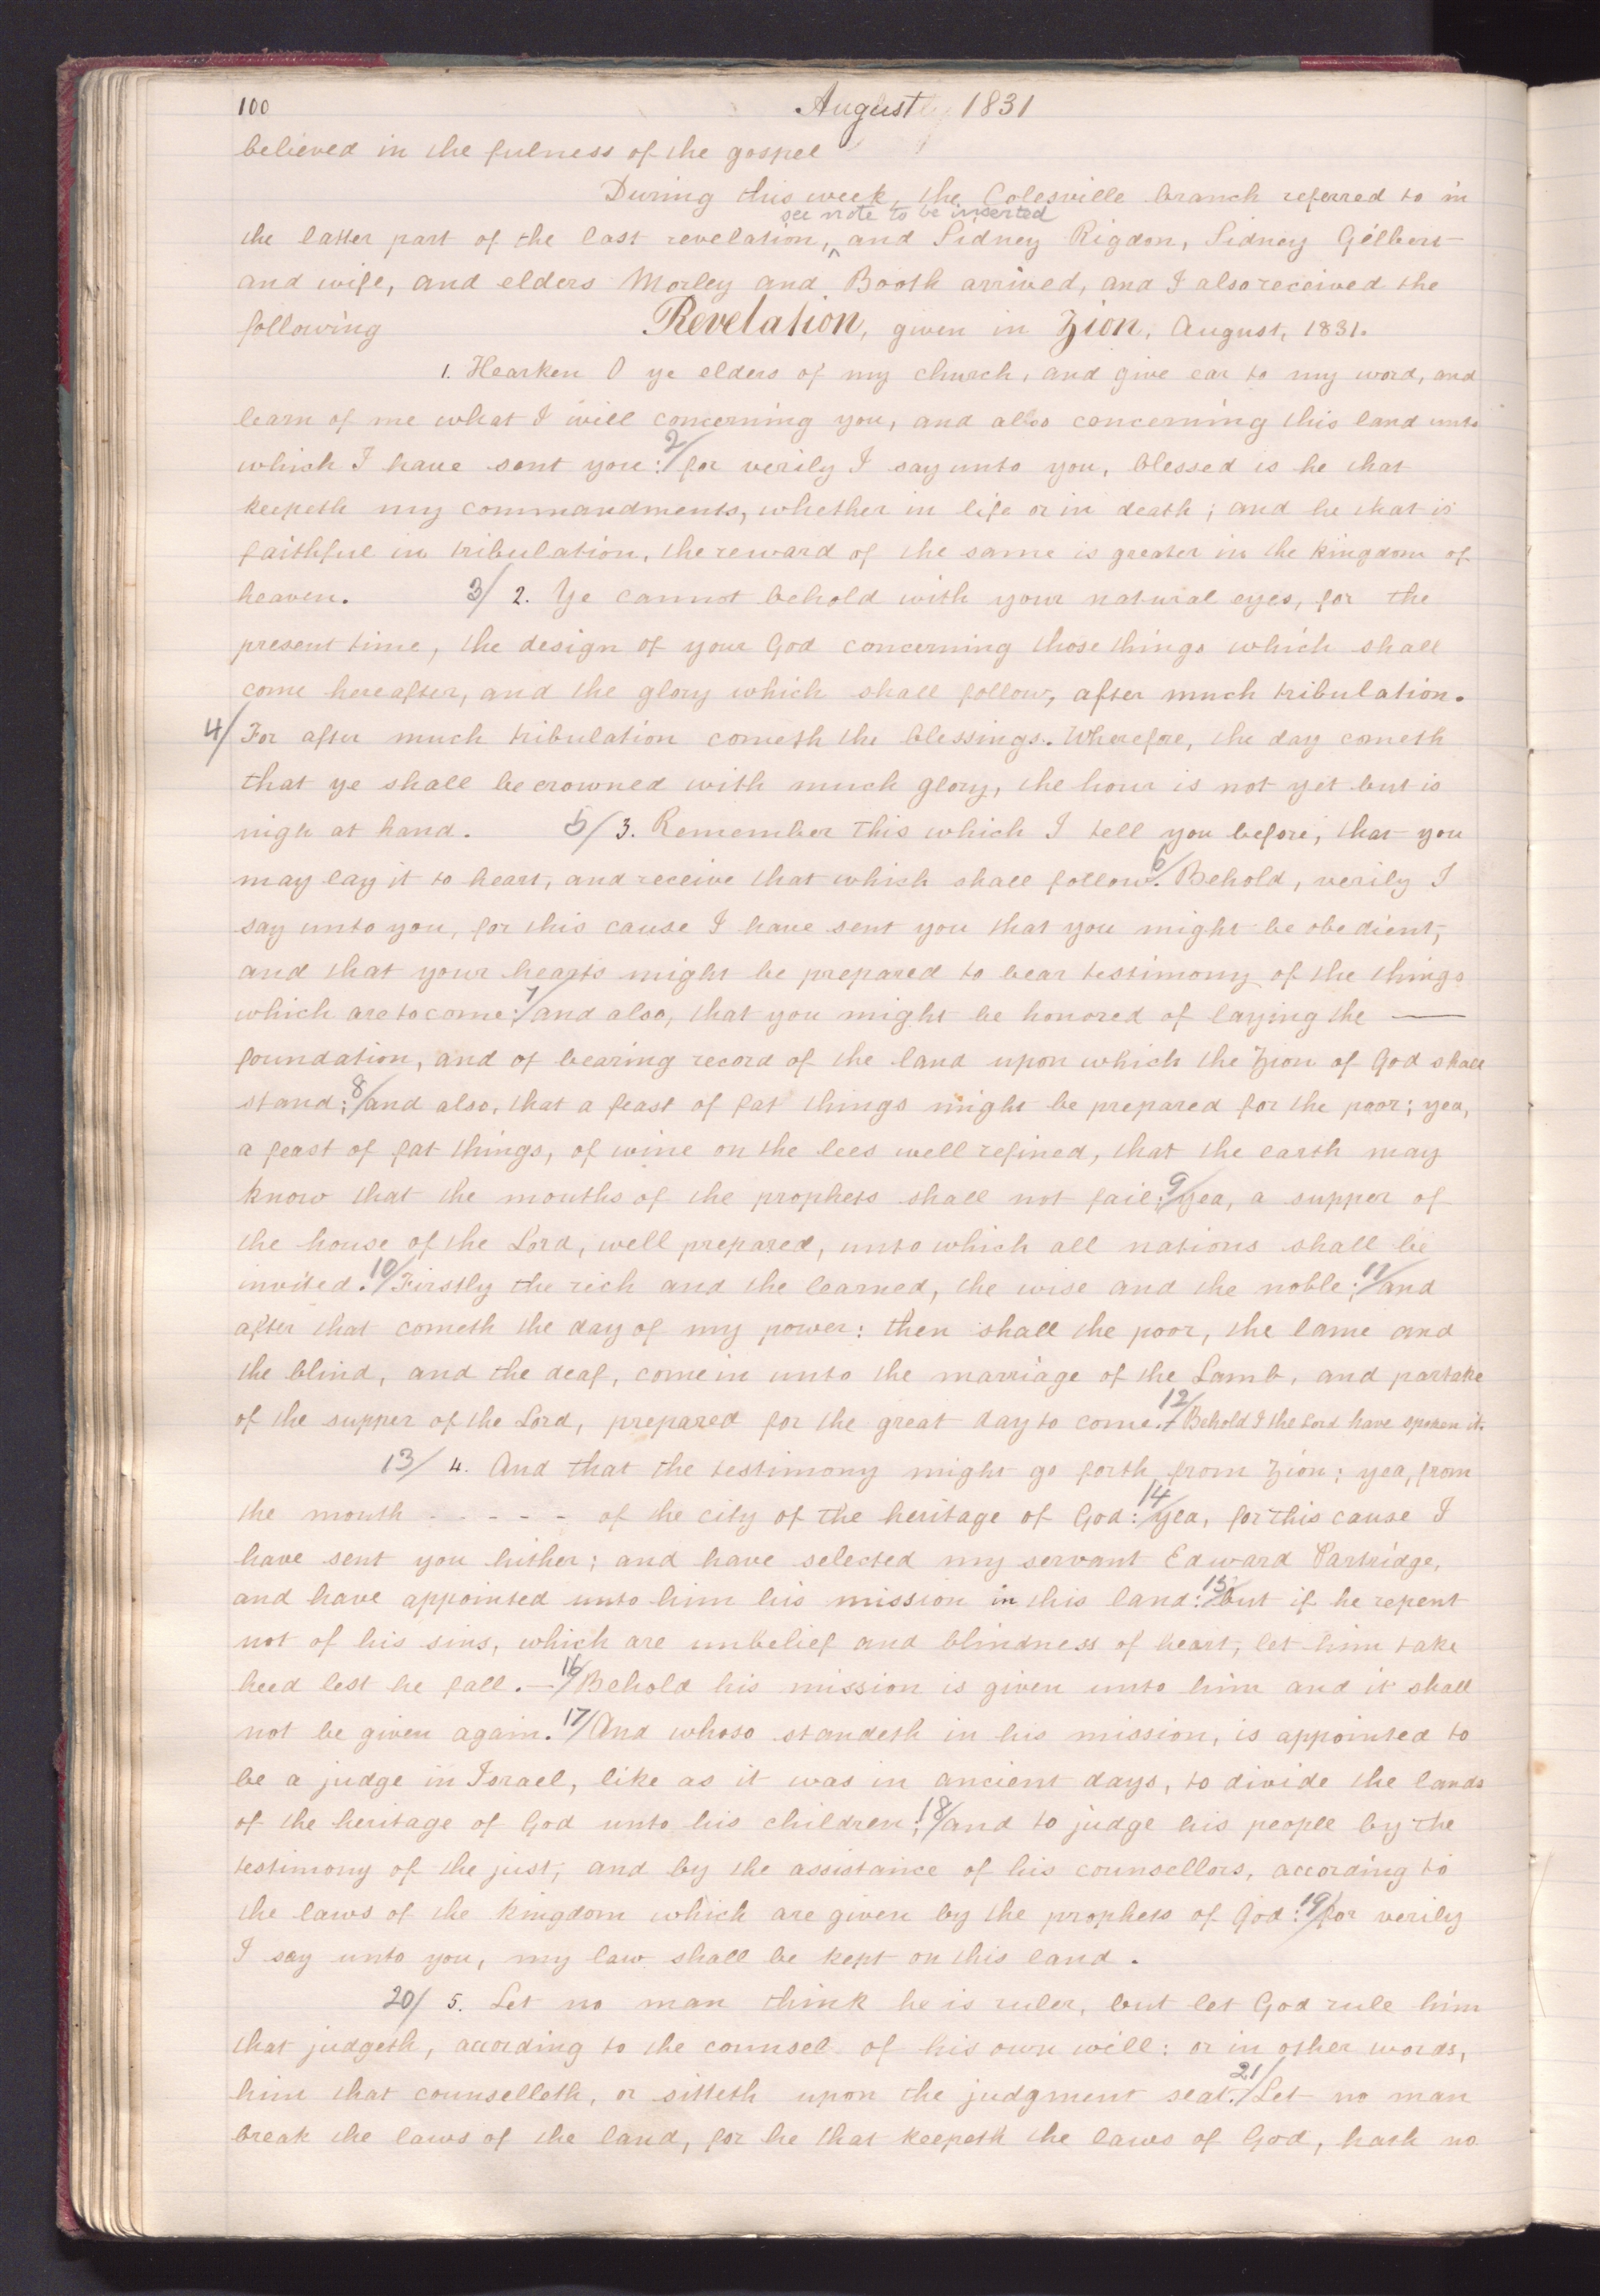 100 August 1831
believed in the fulness of the gospel
During this week, the Colesville branch referred to in
see note to be inserted
the latter part of the last revelation, ^ and Sidney Rigdon, Sidney Gilbert
and wife, and elders Morley and Booth arrived, and I also received the
following Revelation, given in Zion, August, 1831.
1. Hearken O ye elders of my church, and give ear to my word, and
learn of me what I will concerning you, and also concerning this land unto
which I have sent you: 2/ for verily I say unto you, blessed is he that
keepeth my commandments, whether in life or in death; and he that is
faithful in tribulation, the reward of the same is greater in the kingdom of
heaven. 3/ 2. Ye cannot behold with your natural eyes, for the
present time, the design of your God concerning those things which shall
come hereafter, and the glory which shall follow, after much tribulation.
4/ For after much tribulation cometh the blessings. Wherefore, the day cometh
that ye shall be crowned with much glory, the hour is not yet but is
nigh at hand. 5/ 3. Remember this which I tell you before, that you
may lay it to heart, and receive that which shall follow. 6/ Behold, verily I
say unto you, for this cause I have sent you that you might be obedient,
and that your hearts might be prepared to bear testimony of the things
which are to come: 7/ and also, that you might be honored of laying the —
foundation, and of bearing record of the land upon which the Zion of God shall
stand; 8/ and also, that a feast of fat things might be prepared for the poor; yea,
a feast of fat things, of wine on the lees well refined, that the earth may
know that the mouths of the prophets shall not fail; 9/ yea, a supper of
the house of the Lord, well prepared, unto which all nations shall be
invited. 10/ Firstly the rich and the learned, the wise and the noble; 11/ and
after that cometh the day of my power: then shall the poor, the lame and
the blind, and the deaf, come in unto the marriage of the Lamb, and partake
of the supper of the Lord, prepared for the great day to come. 12/ Behold I the Lord have spoken it.
13/ 4. And that the testimony might go forth from Zion; yea, from
the mouth - - - - - of the city of the heritage of God: 14/ yea, for this cause I
have sent you hither; and have selected my servant Edward Partridge,
and have appointed unto him his mission in this land: 15/ but if he repent
not of his sins, which are unbelief and blindness of heart, let him take
heed lest he fall. — 16/ Behold his mission is given unto him and it shall
not be given again. 17/ And whoso standeth in his mission, is appointed to
be a judge in Israel, like as it was in ancient days, to divide the lands
of the heritage of God unto his children; 18/ and to judge his people by the
testimony of the just, and by the assistance of his counsellors, according to
the laws of the kingdom which are given by the prophets of God: 19/ for verily
I say unto you, my law shall be kept on this land.
20/ 5. Let no man think he is ruler, but let God rule him
that judgeth, according to the counsel of his own will: or in other words,
him that counselleth, or sitteth upon the judgment seat. 21/ Let no man
break the laws of the land, for he that keepeth the laws of God, hath no